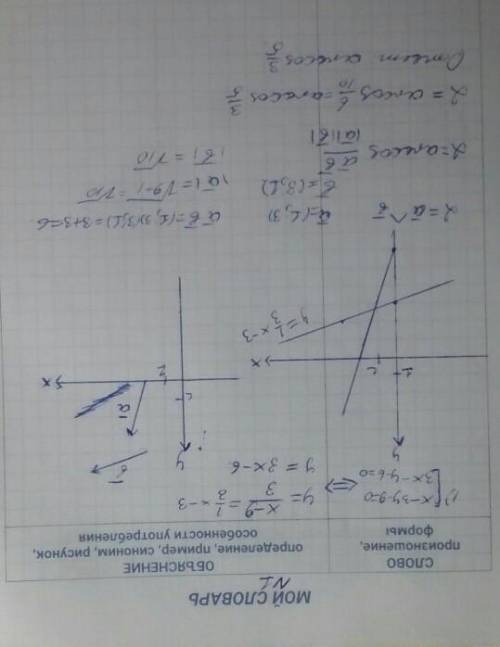 МОЙ СЛОВАРЬ
N1
СЛОВО
произношение,
формы
ОБЪЯСНЕНИЕ
определение, пример, синоним, рисунок,
особенности употребления
1) [x-3y-9=0
3x-y-6=0
<=> y = x-9/3 = 1/3 x-3
y = 3x-6
y
1
1
x
y = 1/3 x-3
y
1
1
x
a
b
α = a ^ b
a=(1,3)
b=(3,1)
a b = (1,3)(3,1) = 3+3=6
|a| = √9-1 = √10
|b| = √10
α = arccos a b / |a||b|
α = arccos 6/10 = arccos 3/5
Ответ arccos 3/5